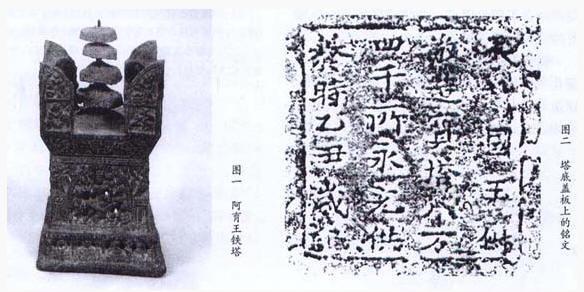 图一 阿育王铁塔
國王俶
敬造寶塔八万
四千所永充供
養時乙丑歲
图二 塔底盖板上的铭文